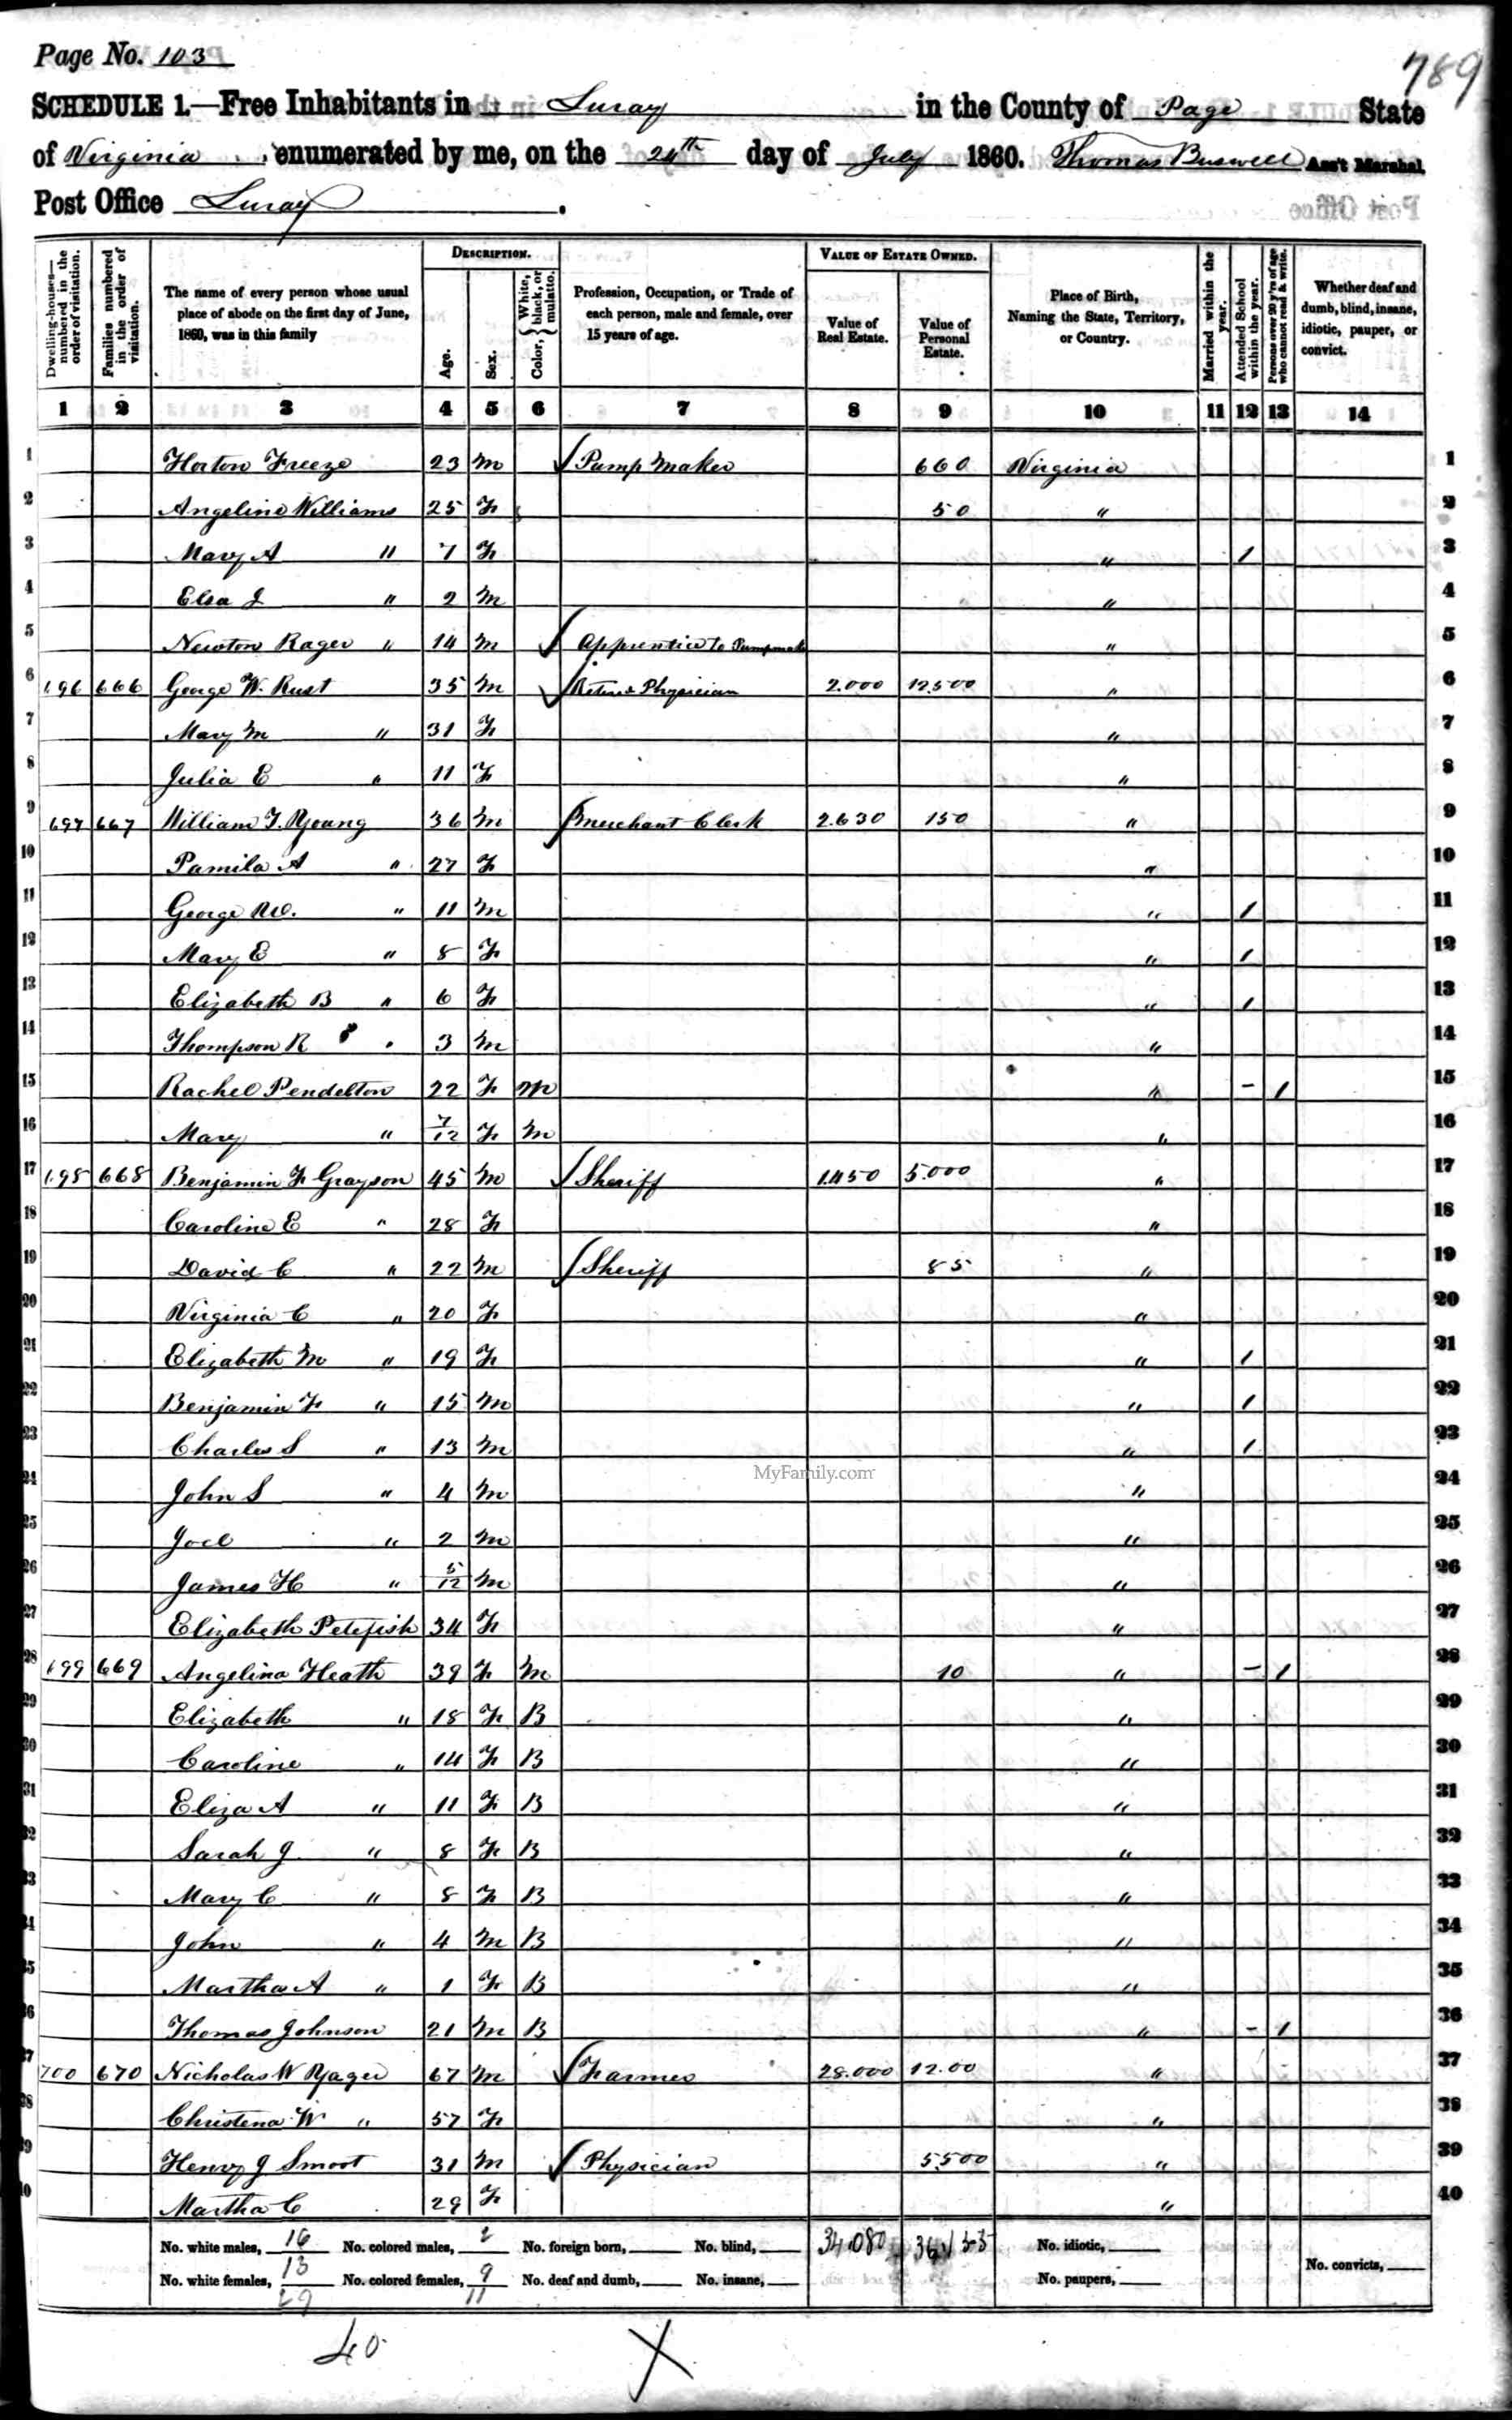 Page No. 103
789
SCHEDULE 1.—Free Inhabitants in Luray in the County of Page State
of Virginia enumerated by me, on the 24th day of July 1860. Thomas Buswell Ass't Marshal.
Post Office Luray.
Dwelling-houses—numbered in the order of visitation.
Families numbered in the order of visitation.
The name of every person whose usual place of abode on the first day of June, 1860, was in this family
DESCRIPTION.
Age.
Sex.
Color, { White, black, or mulatto.
Profession, Occupation, or Trade of each person, male and female, over 15 years of age.
VALUE OF ESTATE OWNED.
Value of Real Estate.
Value of Personal Estate.
Place of Birth, Naming the State, Territory, or Country.
Married within the year.
Attended School within the year.
Persons over 20 y'rs of age who cannot read & write.
Whether deaf and dumb, blind, insane, idiotic, pauper, or convict.
1 2 3 4 5 6 7 8 9 10 11 12 13 14
1 Horton Freeze 23 m Pump maker 660 Virginia 1
2 Angelina Williams 25 F 50 " 2
3 Mary A " 7 F " 1 3
4 J " 2 m " 4
5 Newton Rager " 14 m Apprentice to " 5
6 696 666 George W. Rust 35 m Physician 2.000 12.500 " 6
7 Mary M " 31 F " 7
8 Julia E " 11 F " 8
9 697 667 William T. Young 36 m Merchant Clerk 2.630 150 " 9
10 Pamila A " 27 F " 10
11 George W. " 11 m " 1 11
12 Mary E " 8 F " 1 12
13 Elizabeth B " 6 F " 1 13
14 Thompson R " 3 m " 14
15 Rachel Pendelton 22 F M " – 1 15
16 Mary " 7/12 F M " 16
17 698 668 Benjamin F Grayson 45 m Sheriff 1.450 5.000 " 17
18 Caroline E " 28 F " 18
19 David C " 22 m Sheriff 85 " 19
20 Virginia C " 20 F " 20
21 Elizabeth M " 19 F " 1 21
22 Benjamin F " 15 m " 1 22
23 Charles S " 13 m " 1 23
MyFamily.com
24 John S " 4 m " 24
25 Joel " 2 m " 25
26 James H " 5/12 m " 26
27 Elizabeth Petefish 34 F " 27
28 699 669 Angelina Heath 39 F M 10 " – 1 28
29 Elizabeth " 18 F B " 29
30 Caroline " 14 F B " 30
31 Eliza A " 11 F B " 31
32 Sarah J " 8 F B " 32
33 Mary C " 8 F B " 33
34 John " 4 m B " 34
35 Martha A " 1 F B " 35
36 Thomas Johnson 21 m B " – 1 36
37 700 670 Nicholas W Yager 67 m Farmer 28.000 12.00 " 37
38 Christena W " 57 F " 38
39 Henry J Smoot 31 m Physician 5.500 " 39
40 Martha C 29 F " 40
No. white males, 16 No. colored males, 2 No. foreign born, No. blind, 34,080 No. idiotic,
No. white females, 13 No. colored females, 9 No. deaf and dumb, No. insane, No. paupers, No. convicts,
29 11
40 X